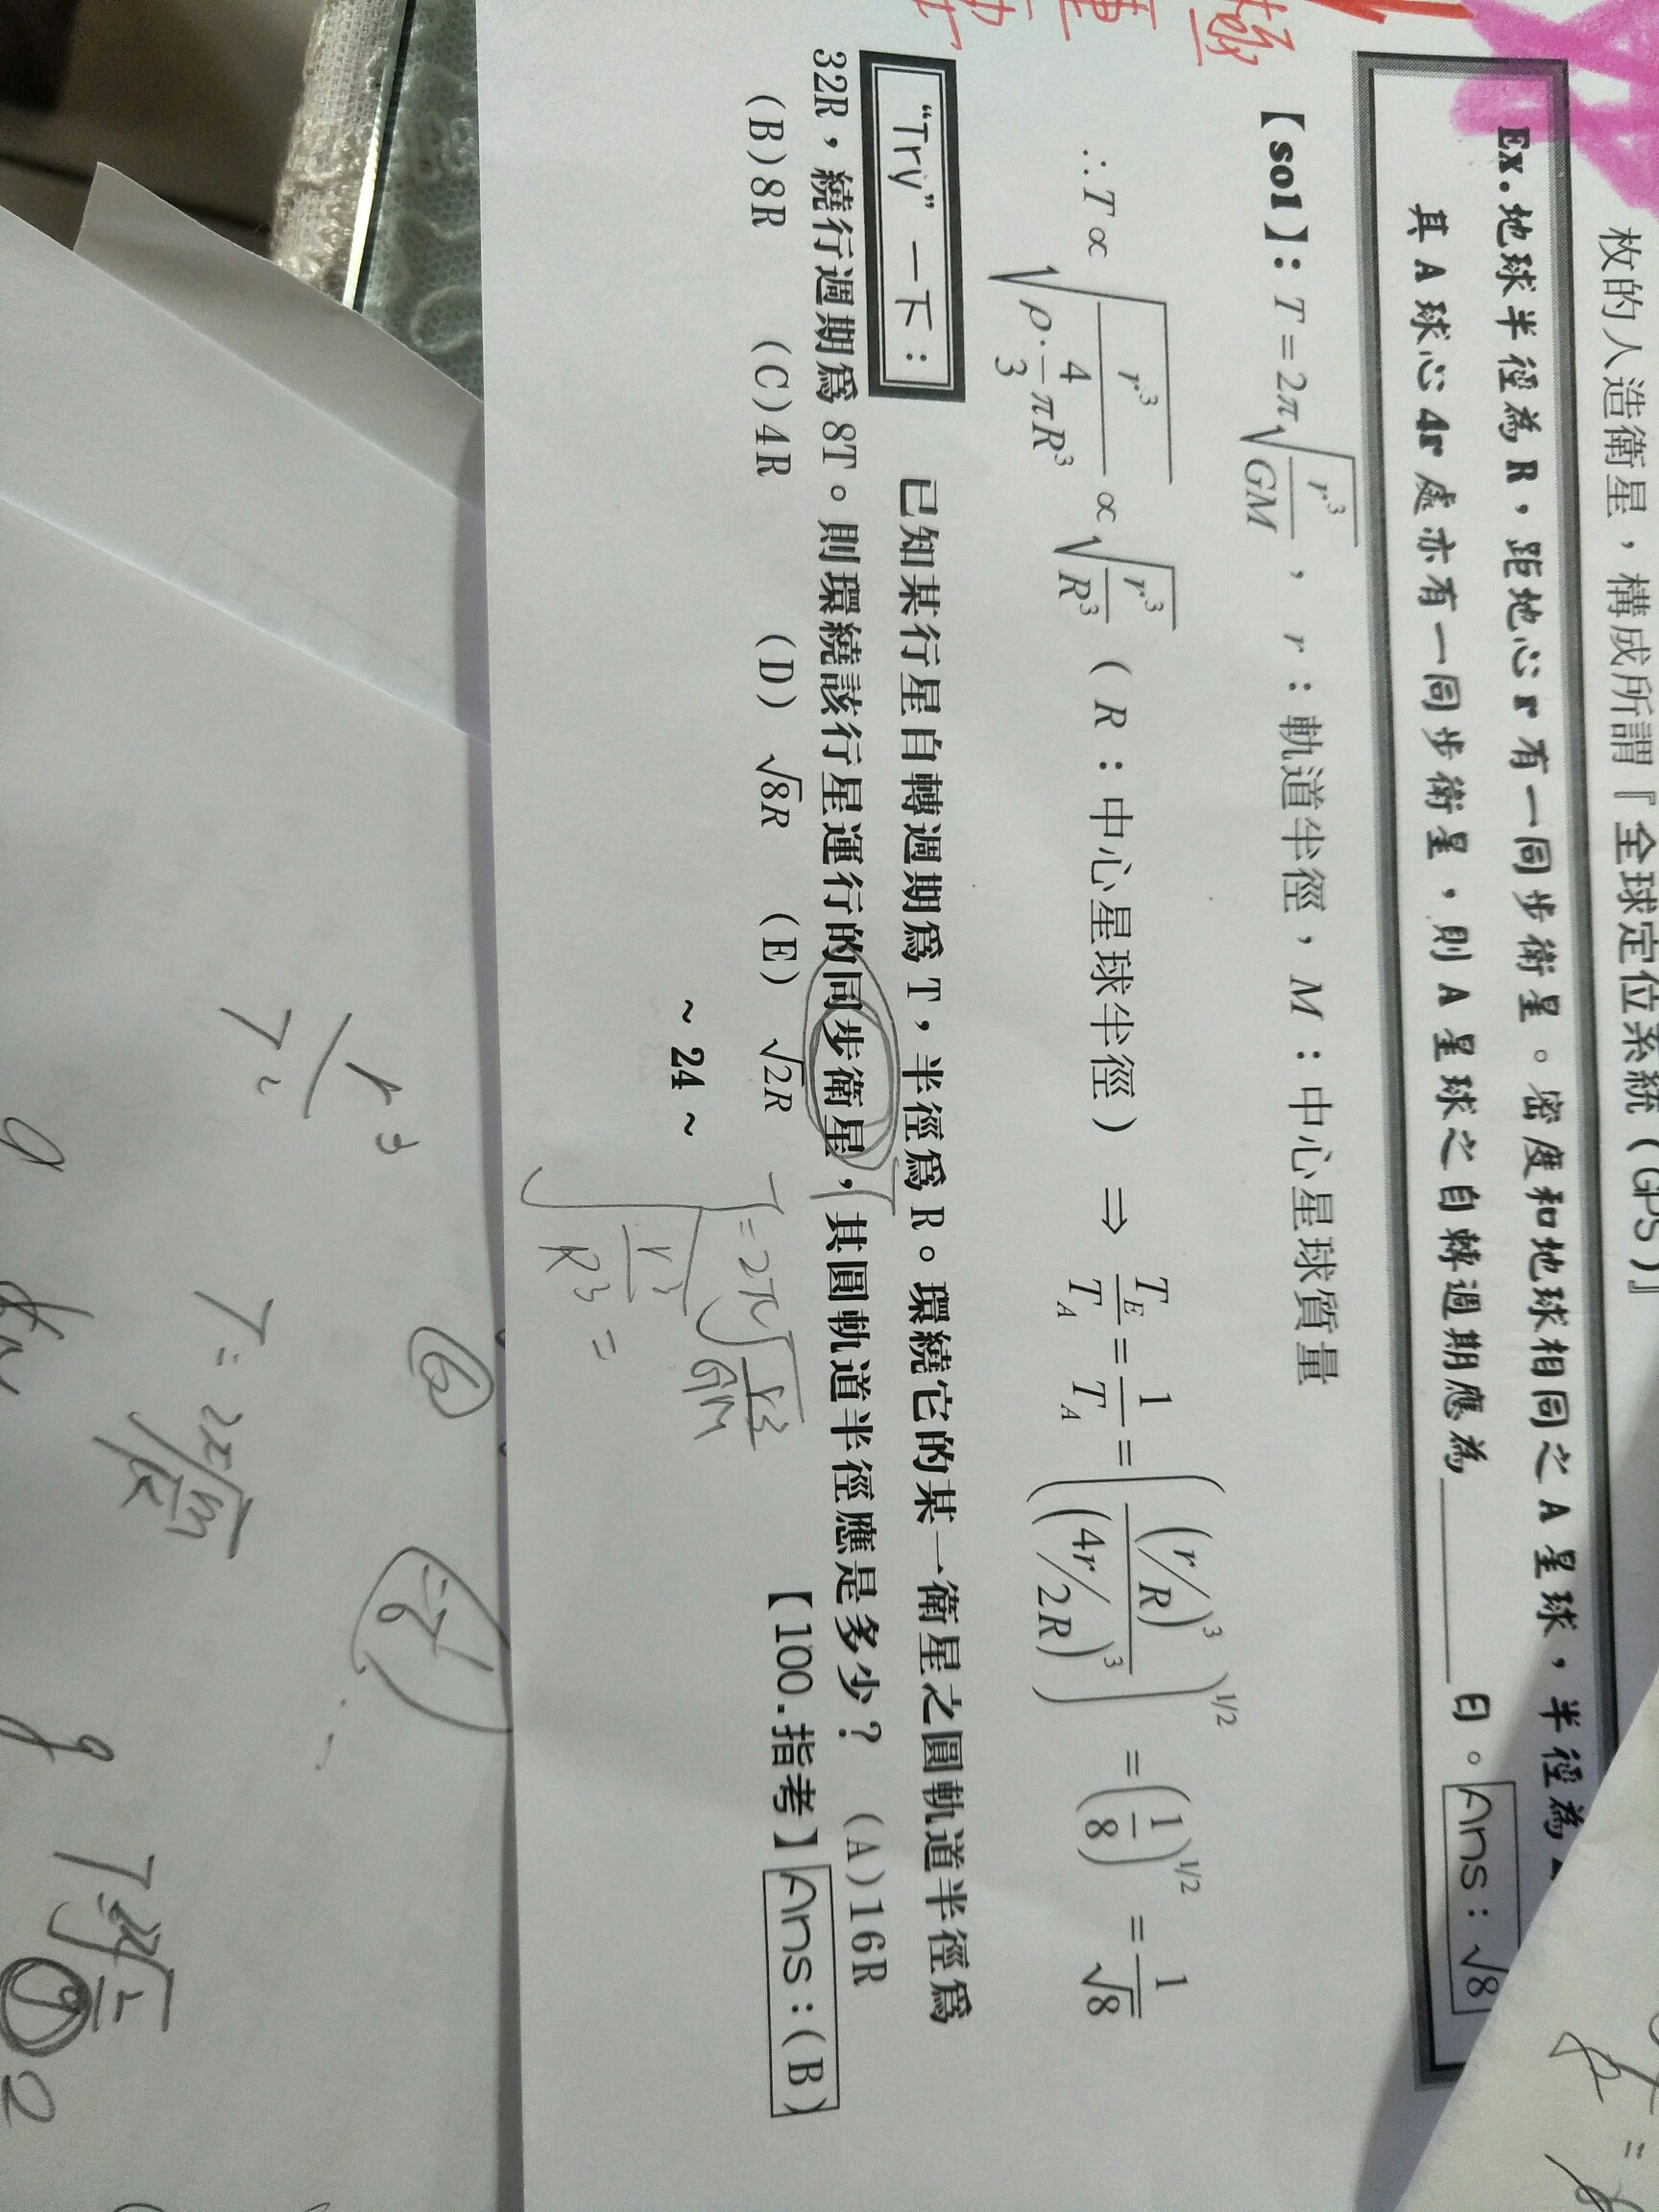 枚的人造衛星，構成所謂『全球定位系統(GPS)』
Ex.地球半徑為R，距地心r有一同步衛星。密度和地球相同之A星球，半徑為2
其A球心4r處亦有一同步衛星，則A星球之自轉週期應為______日。Ans：√8
【sol】：T=2π√(r³/GM)，r：軌道半徑，M：中心星球質量
∴T∝√(r³/(ρ·4/3πR³))∝√(r³/R³)（R：中心星球半徑）⇒T_E/T_A=1/T_A=((r/R)³/(4r/2R)³)^1/2=(1/8)^1/2=1/√8
“Try”一下：
已知某行星自轉週期為T，半徑為R。環繞它的某一衛星之圓軌道半徑為
32R，繞行週期為8T。則環繞該行星運行的同步衛星，其圓軌道半徑應是多少？(A)16R
(B)8R (C)4R (D) √8R (E) √2R 【100.指考】Ans：(B)
T=2π√(r³/GM)
√(r³/R³) =
~ 24 ~
r³/T²